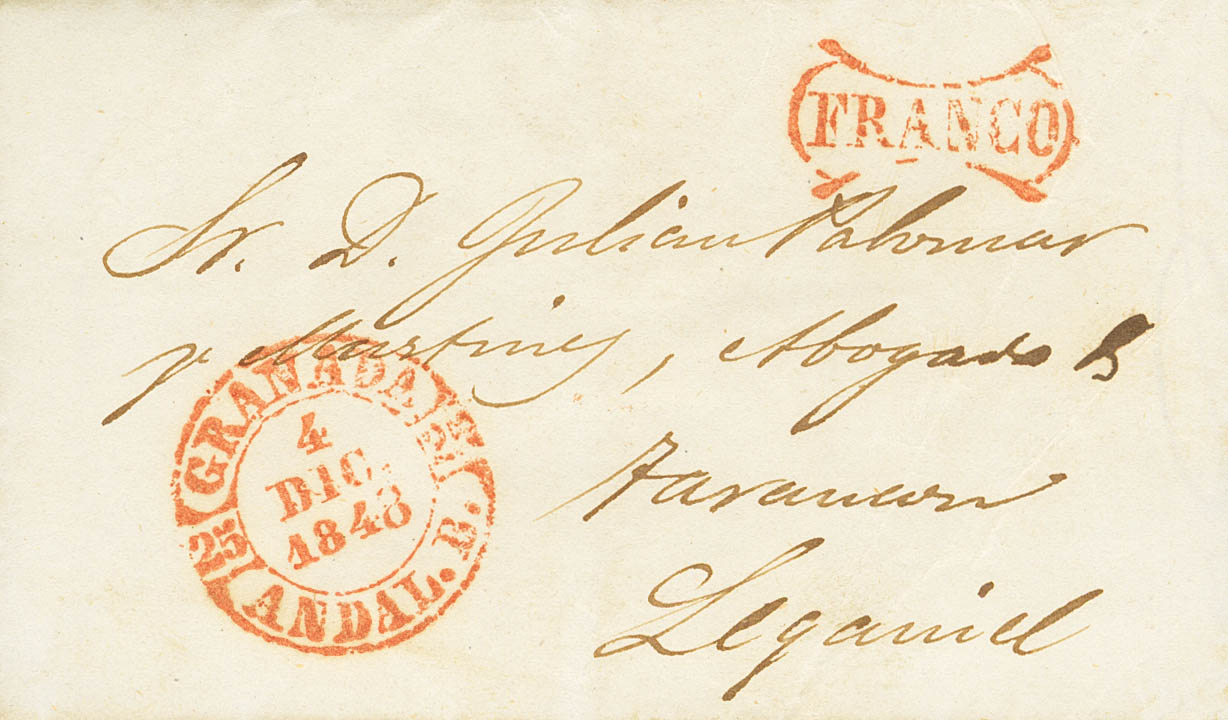 FRANCO
Sr. D. Julian Palomar
y Martinez, Abogado
Tarancon
Leganiel
GRANADA
4
DIC.
1848
25
ANDAL. B.